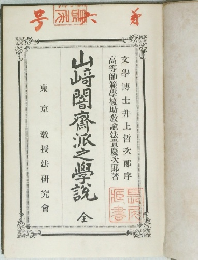 文學博士井上哲次郎序
高等師範學校助教諭法貴慶次郎著
山﨑闇齋派之學說 全
東京 教授法研究會
号